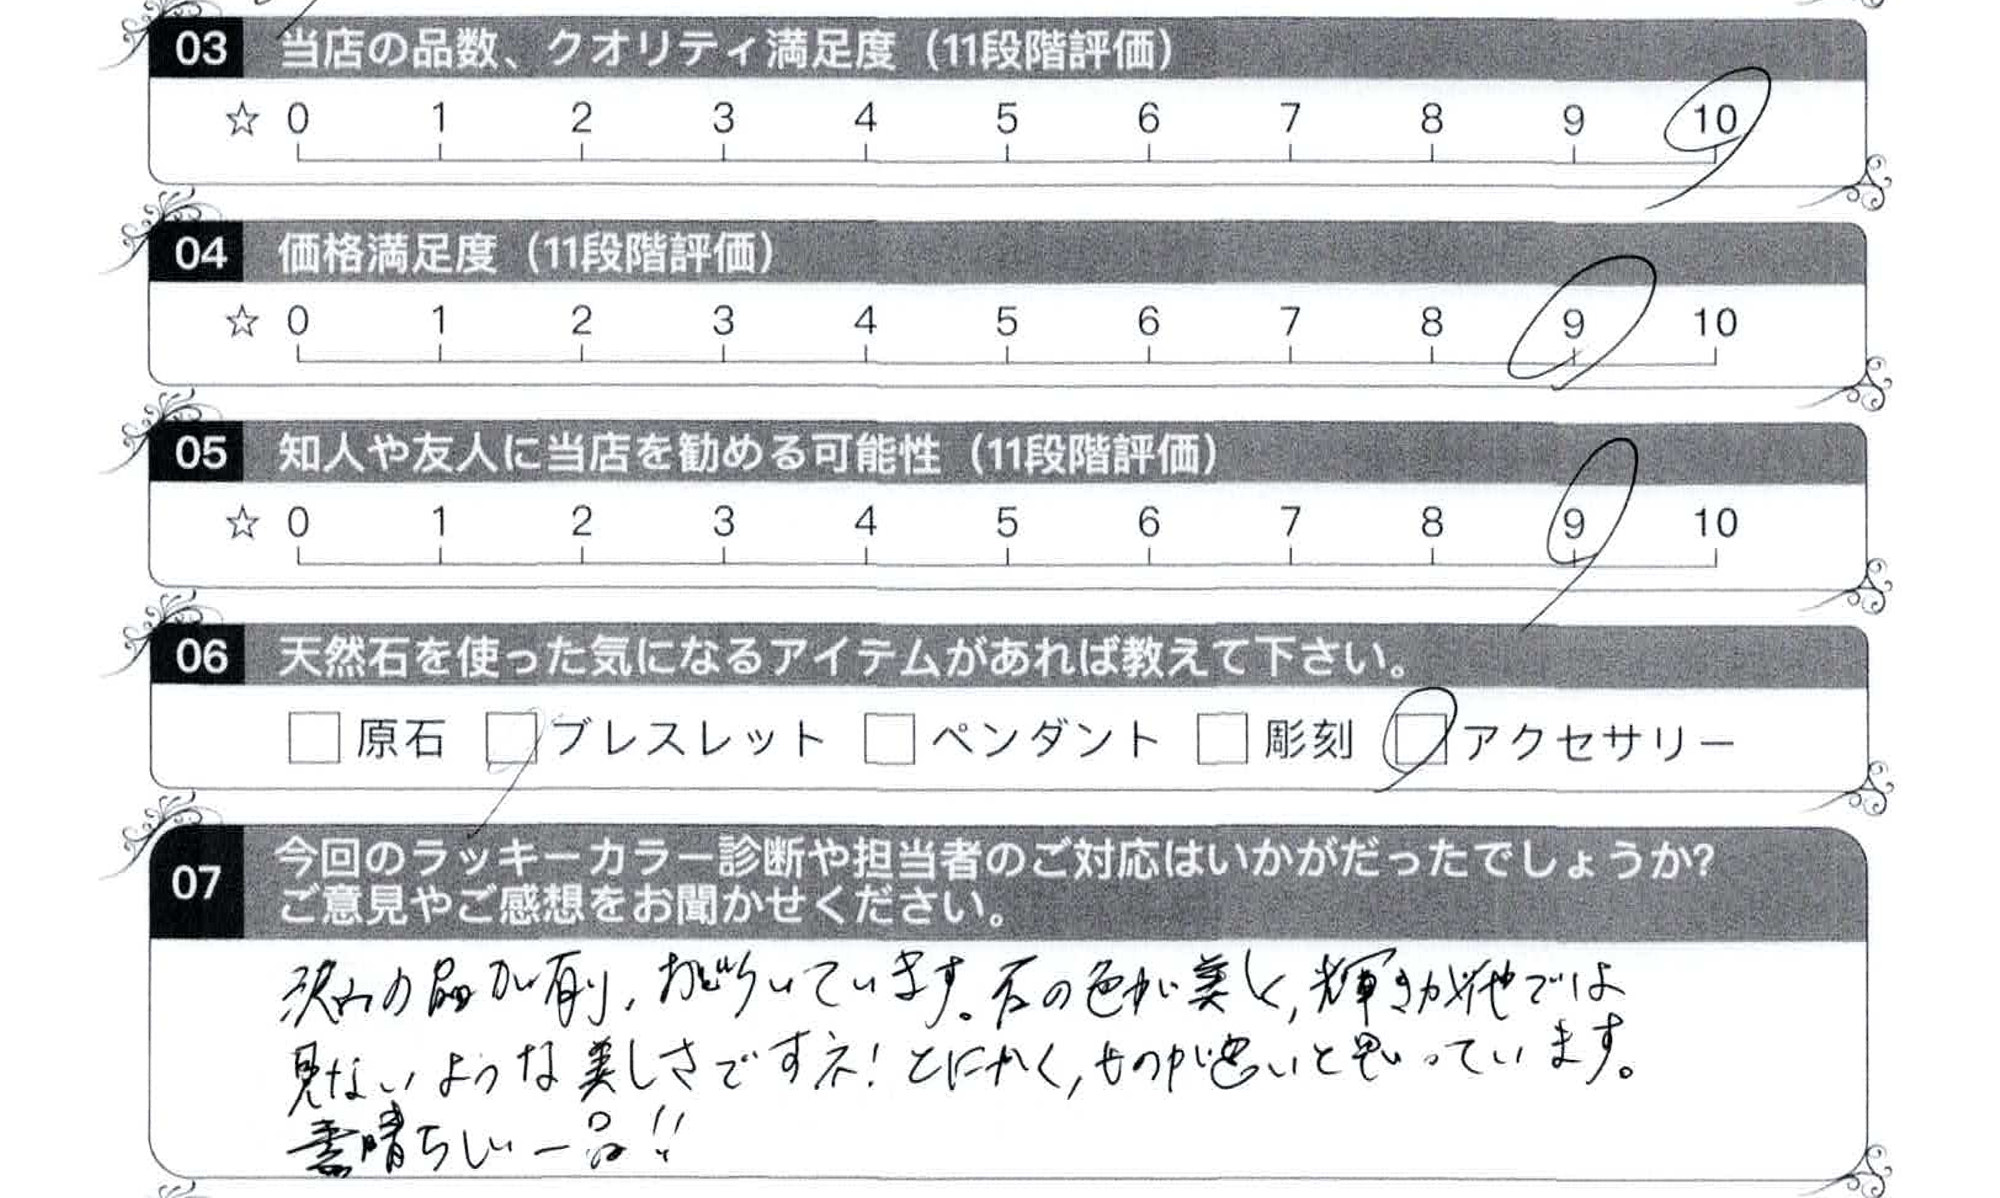 03 当店の品数、クオリティ満足度（11段階評価）
☆ 0 1 2 3 4 5 6 7 8 9 10
04 価格満足度（11段階評価）
☆ 0 1 2 3 4 5 6 7 8 9 10
05 知人や友人に当店を勧める可能性（11段階評価）
☆ 0 1 2 3 4 5 6 7 8 9 10
06 天然石を使った気になるアイテムがあれば教えて下さい。
□ 原石 □ ブレスレット □ ペンダント □ 彫刻 □ アクセサリー
07 今回のラッキーカラー診断や担当者のご対応はいかがだったでしょうか?
ご意見やご感想をお聞かせください。
沢山の品が有り、おどろいています。石の色が美しく、輝きが他では
見ないような美しさですネ！とにかく、ものが良いと思っています。
素晴らしい一品!!